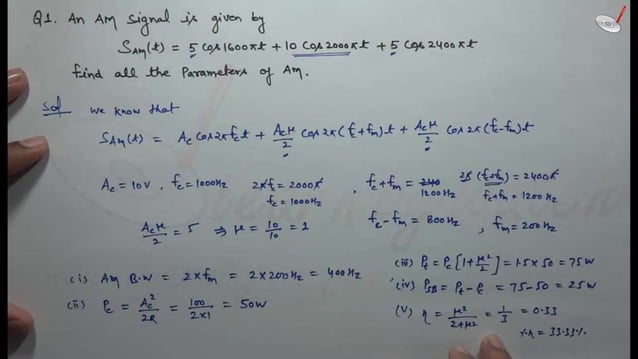 Q1. An AM signal is given by
S_AM(t) = 5 Cos1600πt + 10 Cos2000πt + 5 Cos2400πt
find all the Parameters of AM.
Sol we know that
S_AM(t) = A_c Cos2πf_c t + A_cμ/2 Cos2π(f_c+f_m)t + A_cμ/2 Cos2π(f_c-f_m)t
A_c = 10V, f_c = 1000Hz 2πf_c = 2000π, f_c+f_m = 240 2π(f_c+f_m) = 2400π
f_c = 1000Hz 1200Hz f_c+f_m = 1200Hz
A_cμ/2 = 5 ⇒ μ = 10/10 = 1 f_c-f_m = 800Hz, f_m = 200Hz
(i) AM B.W = 2×f_m = 2×200Hz = 400Hz
(ii) P_c = A_c²/2R = 100/2×1 = 50W
(iii) P_t = P_c[1+μ²/2] = 1.5×50 = 75W
(iv) P_SB = P_t - P_c = 75-50 = 25W
(v) η = μ²/2+μ² = 1/3 = 0.33
%η = 33.33%.